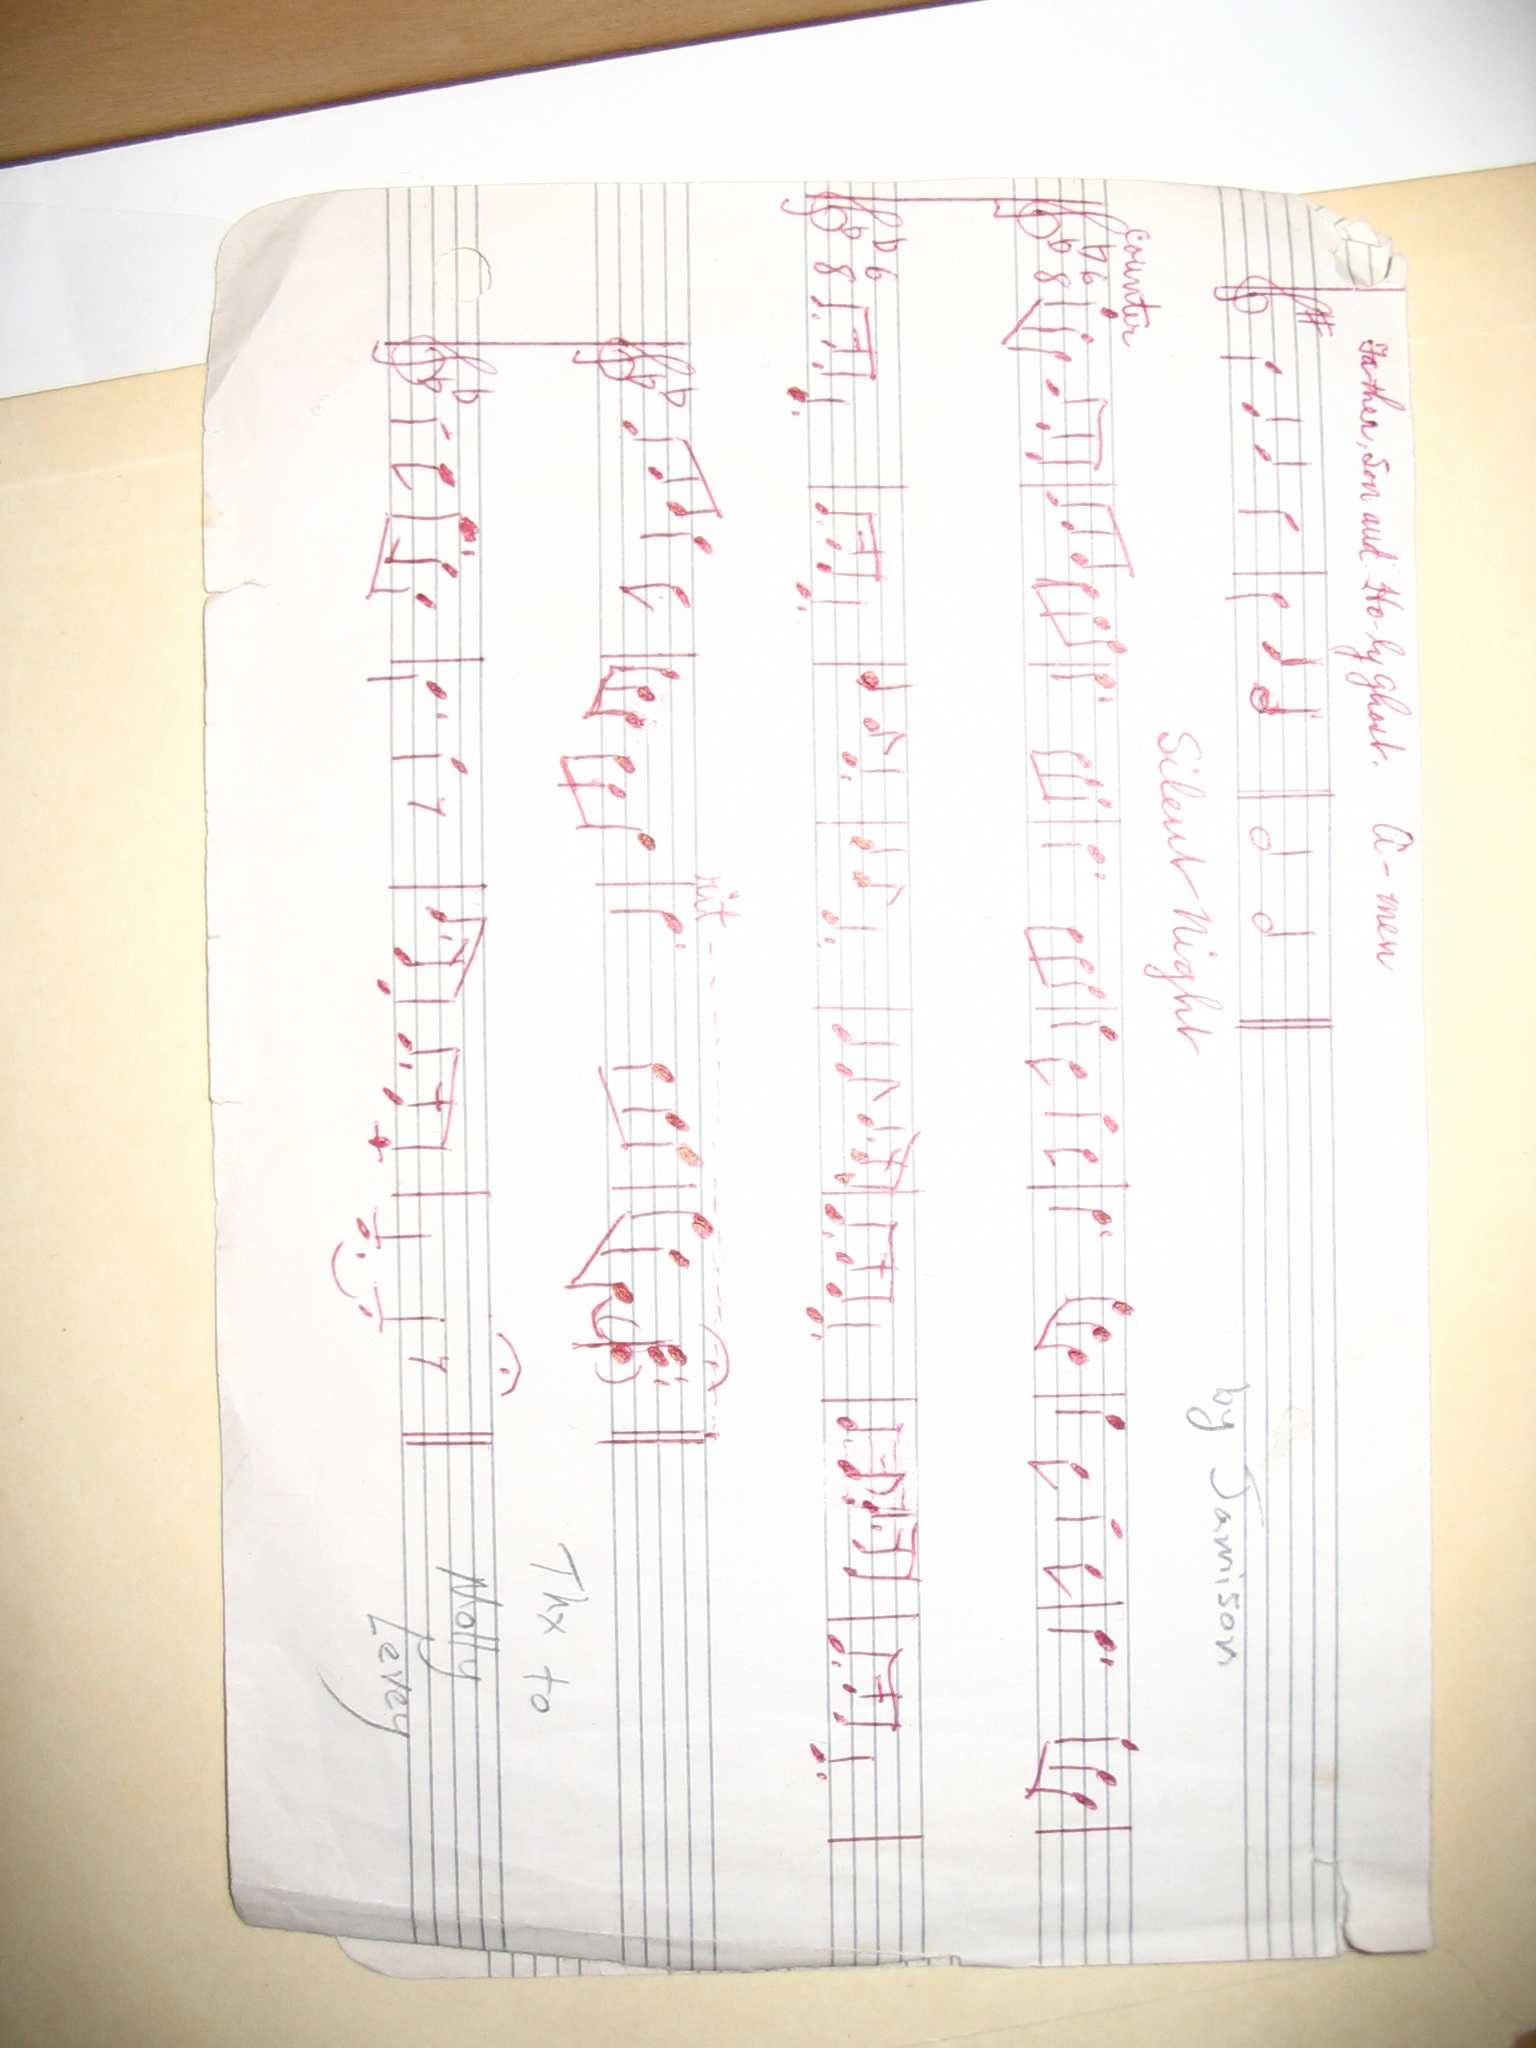 Father, Son and Ho-ly Ghost. A-men
Silent Night
by Jamison
counter
6
8
6
8
rit
Thx to
Molly
Levey